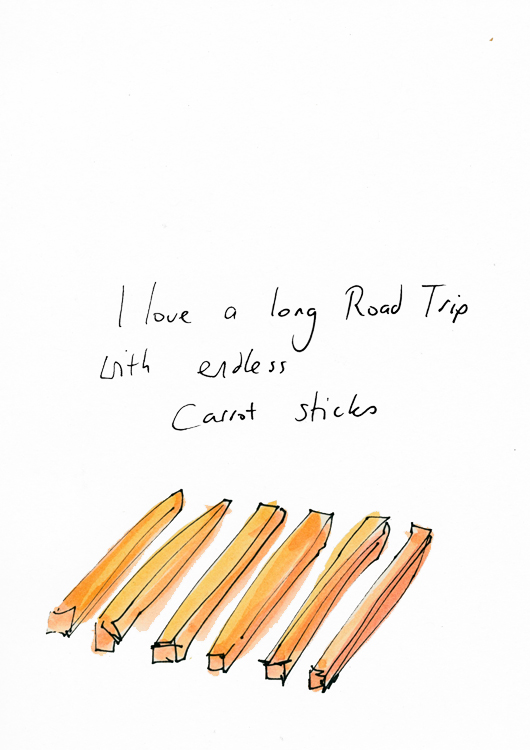 I love a long Road Trip
with endless
Carrot sticks